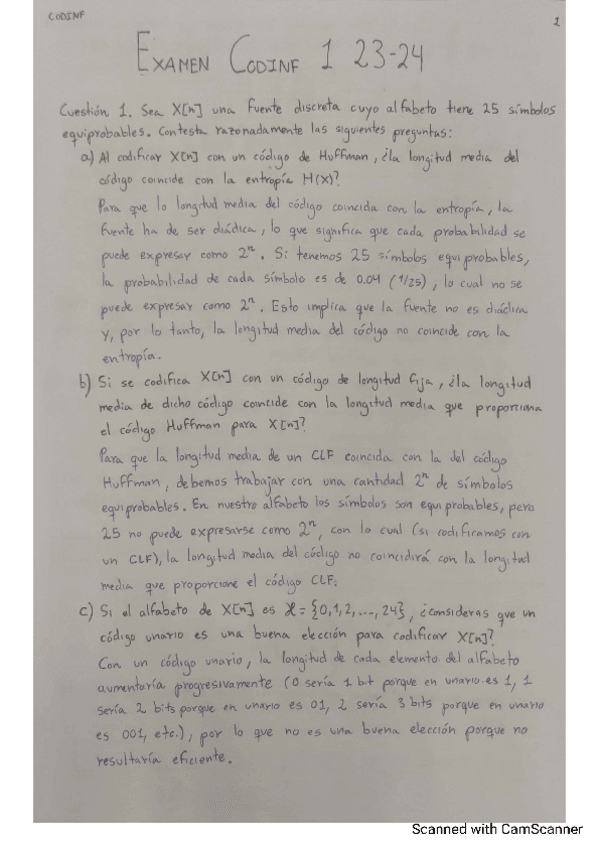 CODINF
1
EXAMEN CODINF 1 23-24
Cuestión 1. Sea X[n] una fuente discreta cuyo alfabeto tiene 25 símbolos
equiprobables. Contesta razonadamente las siguientes preguntas:
a) Al codificar X[n] con un código de Huffman, ¿la longitud media del
código coincide con la entropía H(X)?
Para que la longitud media del código coincida con la entropía, la
fuente ha de ser diádica, lo que significa que cada probabilidad se
puede expresar como 2ⁿ. Si tenemos 25 símbolos equiprobables,
la probabilidad de cada símbolo es de 0.04 (1/25), lo cual no se
puede expresar como 2ⁿ. Esto implica que la fuente no es diádica
y, por lo tanto, la longitud media del código no coincide con la
entropía.
b) Si se codifica X[n] con un código de longitud fija, ¿la longitud
media de dicho código coincide con la longitud media que proporciona
el código Huffman para X[n]?
Para que la longitud media de un CLF coincida con la del código
Huffman, debemos trabajar con una cantidad 2ⁿ de símbolos
equiprobables. En nuestro alfabeto los símbolos son equiprobables, pero
25 no puede expresarse como 2ⁿ, con lo cual (si codificamos con
un CLF), la longitud media del código no coincidirá con la longitud
media que proporcione el código CLF.
c) Si el alfabeto de X[n] es X = {0,1,2,...,24}, ¿consideras que un
código unario es una buena elección para codificar X[n]?
Con un código unario, la longitud de cada elemento del alfabeto
aumentaría progresivamente (0 sería 1 bit porque en unario es 1, 1
sería 2 bits porque en unario es 01, 2 sería 3 bits porque en unario
es 001, etc.), por lo que no es una buena elección porque no
resultaría eficiente.
Scanned with CamScanner